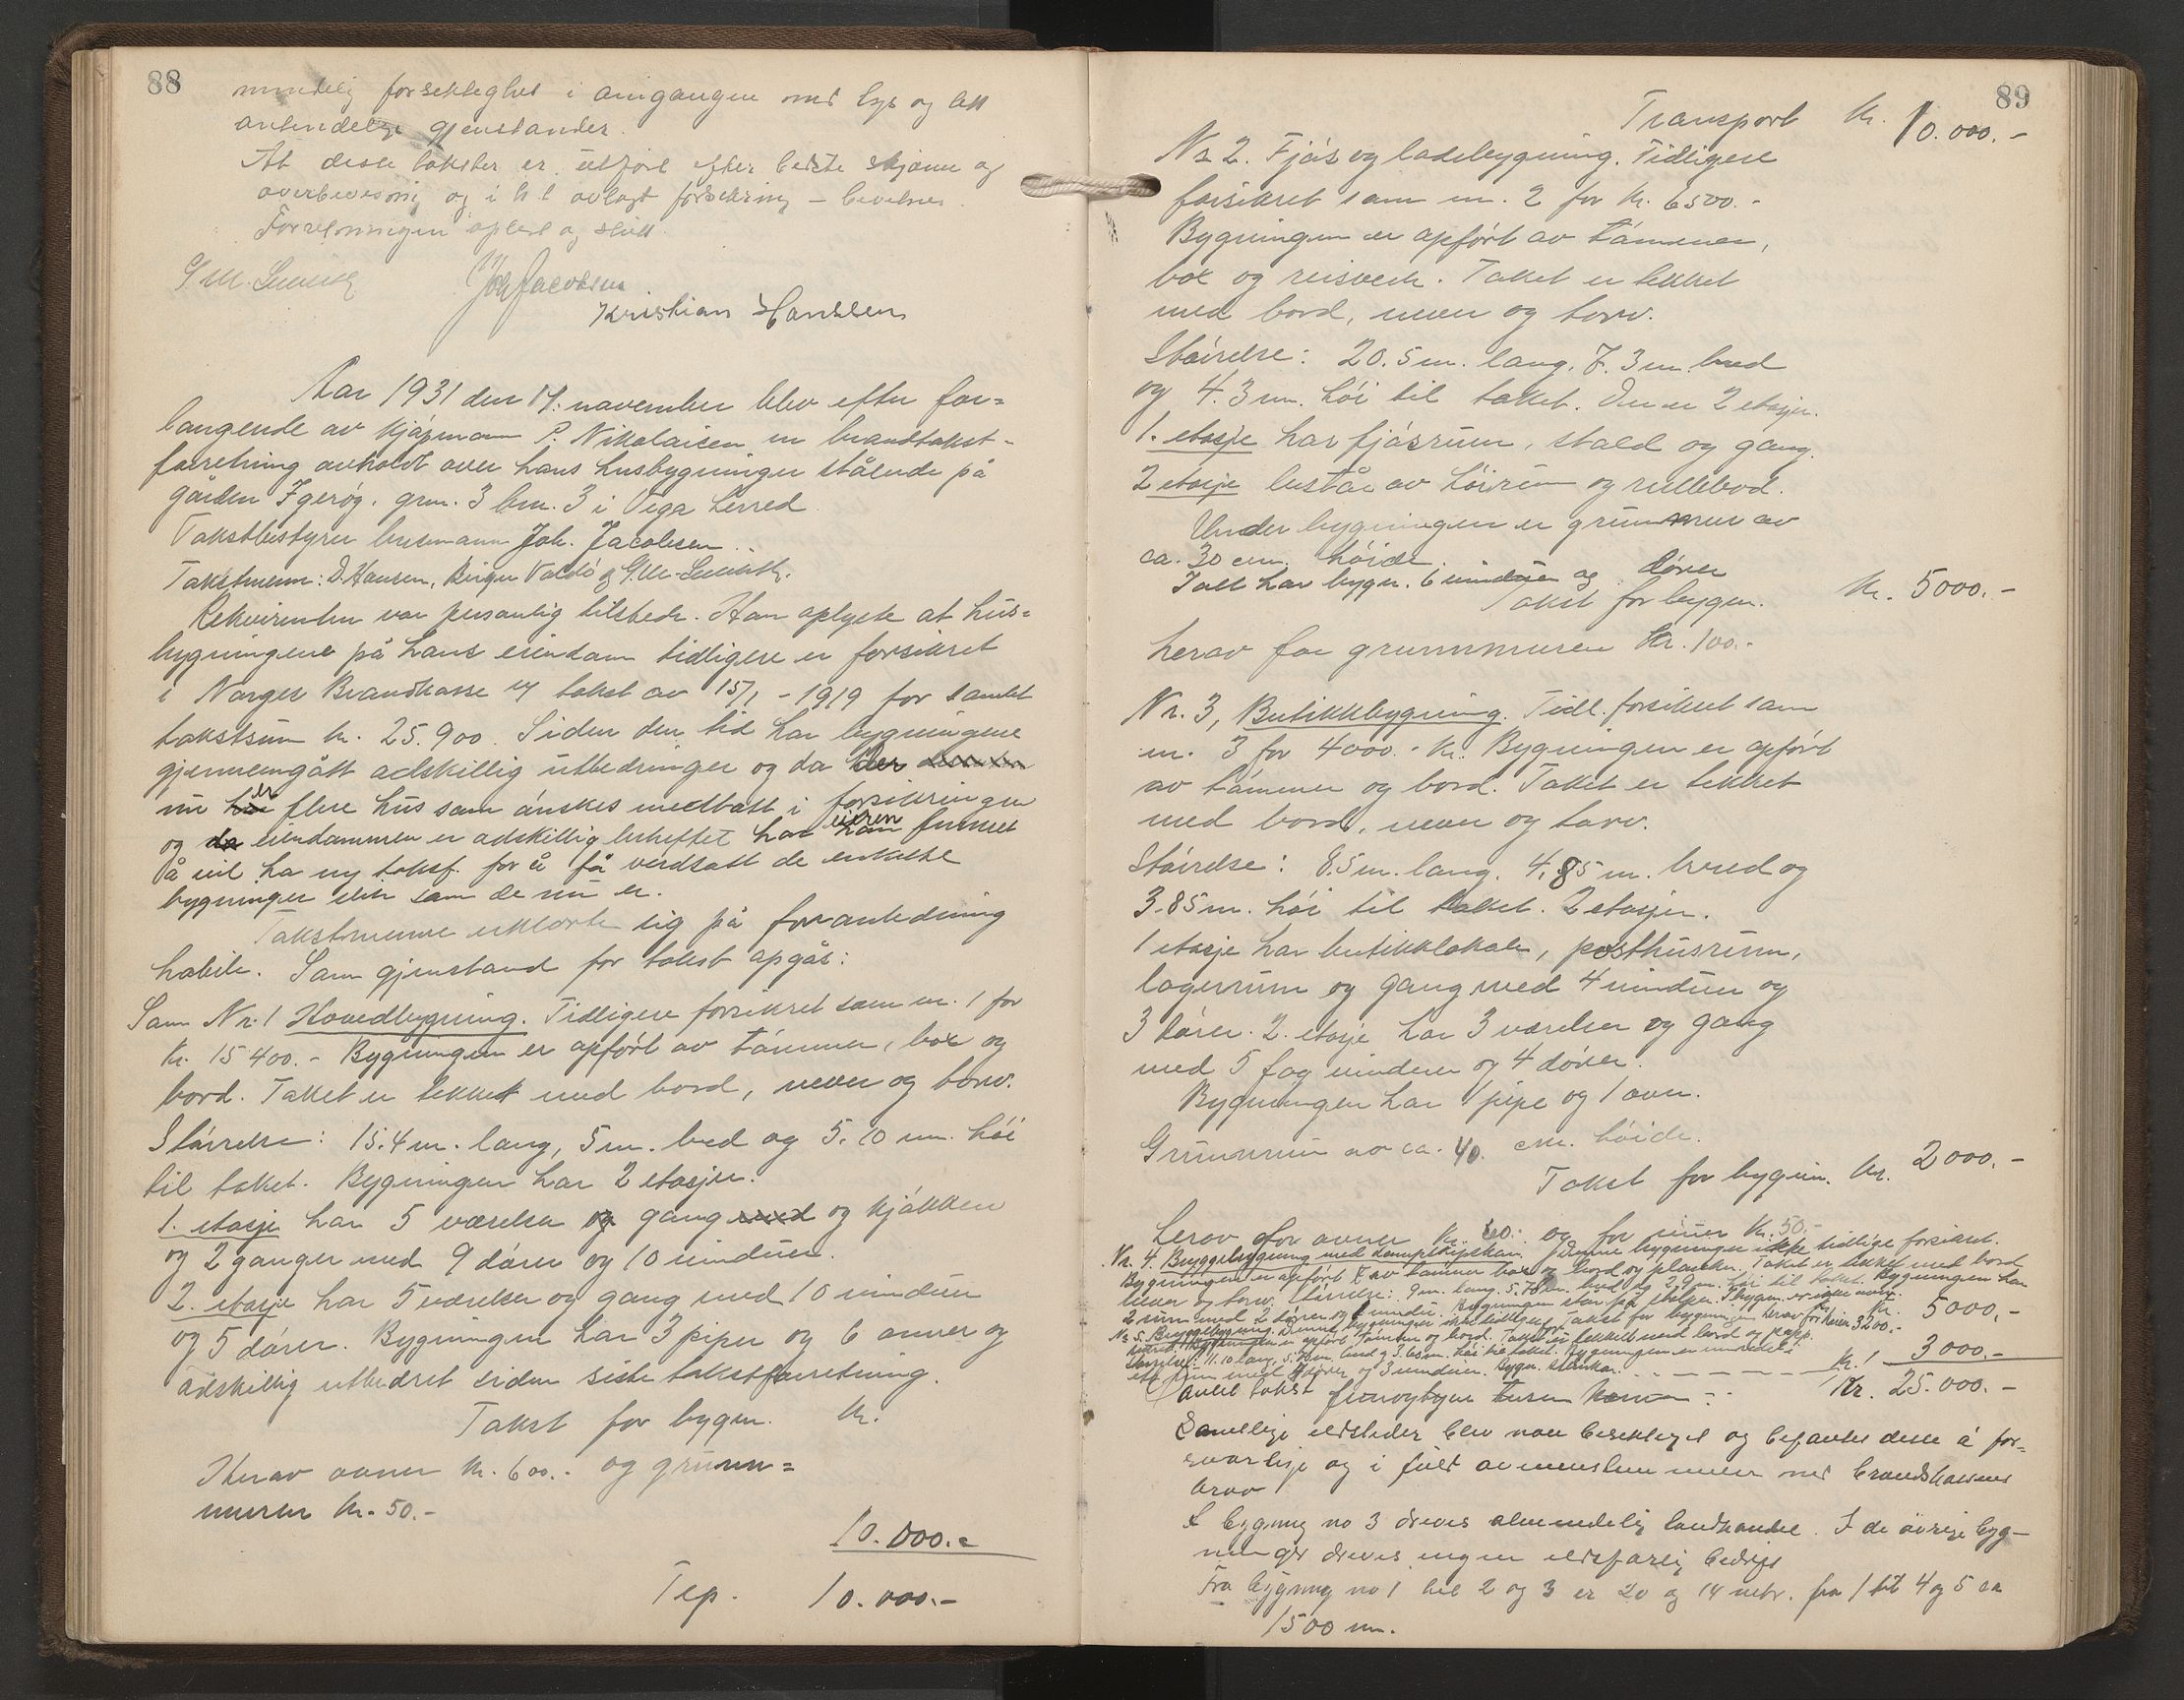 88
forsiktighet i omgangen med lys og lett
antendelige gjenstander.
At disse takster er utført efter beste skjønn og
overbevisning og i h. t. avlagt forsikring – bevidnes.
Forretningen oplest og slutt.
Joh Jacobsen
Kristian Hansen
Aar 1931 den 14. november blev efter for-
langende av kjøpmann P. Nikolaisen en brandtakst-
forretning avholdt over hans husbygninger stående på
gården Igerøy. grm. 3 brn. 3 i Vega herred.
Takstbestyrer lensmann Joh. Jacobsen.
Takstmenn: D. Hansen, Birger Valdø og
Rekvirenten var personlig tilstede. Han oplyste at hus-
bygningene på hans eiendom tidligere er forsikret
i Norges Brandkasse ved takst av 15/1 - 1919 for samlet
takstsum kr. 25.900. Siden den tid har bygningene
gjennemgått adskillig utbedringer og da der
nu er flere hus som ønskes medtatt i forsikringen
og da eiendommen er adskillig beheftet har eieren funnet
å vil ha ny takst. for å få verdsatt de enkelte
bygninger slik som de nu er.
Takstmennene erklærte sig på foranledning
habile. Som gjenstand for takst opgås:
Som Nr. 1 Hovedbygning. Tidligere forsikret som nr. 1 for
Kr. 15 400.- Bygningen er opført av tømmer, box og
bord. Taket er tekket med bord, never og torv.
Størrelse: 15.4 m. lang, 5 m. bred og 5.10 m. høi
til taket. Bygningen har 2 etasjer.
1. etasje har 5 værelser og gang med og kjøkken
og 2 ganger med 9 dører og 10 vinduer.
2. etasje har 5 værelser og gang med 10 vinduer
og 5 dører. Bygningen har 3 piper og 6 ovner og
adskillig utbedret siden siste takstforretning.
Takst for bygn. kr.
Herav ovner kr. 600.- og grunn=
muren kr. 50.-
10.000.-
Tep. 10.000.-
89
Transport kr. 10.000.-
Nr 2. Fjøs og ladebygning. Tidligere
forsikret som nr. 2 for kr. 6500.-
Bygningen er opført av tømmer,
box og reisverk. Taket er tekket
med bord, never og torv.
Størelse: 20.5 m. lang, 7.3 m. bred
og 4.3 m. høi til taket. Den er 2 etasjer.
1. etasje har fjøsrum, stald og gang.
2 etasje består av høirum og rullebod.
Under bygningen er grunnmur av
ca. 30 cm. høide.
I alt har bygn. 6 vinduer og dører
Takst for bygn. kr. 5000.-
herav for grunnmuren kr. 100.-
Nr. 3, Butikkbygning. Tidl. forsikret som
nr. 3 for 4000.- kr. Bygningen er opført
av tømmer og bord. Taket er tekket
med bord, never og torv.
Størelse: 8.5 m. lang, 4,85 m. bred og
3.85 m. høi til taket. 2 etasjer.
1 etasje har butikklokale, posthusrum,
lagerrum og gang med 4 vinduer og
3 dører. 2. etasje har 3 værelser og gang
med 5 fag vinduer og 4 dører.
Bygningen har 1 pipe og 1 ovn.
Grunnmur av ca. 40. cm. høide.
Takst for bygnin. kr. 2000.-
herav for ovner kr. 60.- og for mur kr. 50.-
Nr. 4. Bryggebygning med dampskipskai. Denne bygninger ikke tidlige forsikret.
Bygningen er opført av tømmer box og bord og planker. Taket er tekket med bord
never og torv. Størrelse: 9 m. lang, 5.70 m. bred og 2.9 m. høi til taket. Bygningen har
2 rum med 2 dører og vindu. Bygningen står på stolper. I bygn. er ingen ovn.
Takst for bygningen herav for kaien 3200.- kr. 5000.-
Nr. 5. Bryggebygning. Denne bygninger ikke tidligere
Bygningen er opført tømmer og bord. Taket er tekket med bord og papp.
Størrelse: 11.10 lang, bred og 3.60 m. høi til taket. Bygningen er innredet i
ett rum med dører og 3 vinduer. Bygn. kr. 3000.-
Samlet takst femogtyve tusen kroner kr. 25.000.-
Samtlige ildsteder blev nøie besiktiget og befantes disse å for-
svarlige og i full overensstemmelse med brandkassens
krav
I bygning no 3 drives almindelig landhandel. I de øvrige byg-
ninger drives ingen ildsfarlig bedrift
Fra bygning no 1 til 2 og 3 er 20 og 14 metr. fra 1 til 4 og 5 ca
1500 m.